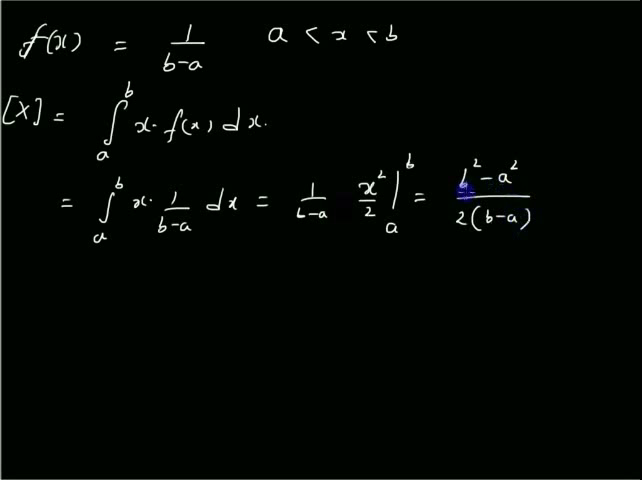 f(x) = 1/(b-a) a < x < b
[X] = ∫_a^b x · f(x) dx.
= ∫_a^b x · 1/(b-a) dx = 1/(b-a) x²/2 |_a^b = (b² - a²)/(2(b-a))